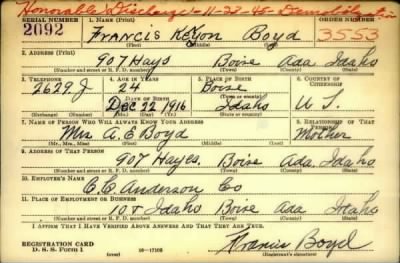 Honorable Discharge 11-27-45 Demobilization
SERIAL NUMBER 1. NAME (Print) ORDER NUMBER
2092 Francis Kenyon Boyd 3553
(First) (Middle) (Last)
2. ADDRESS (Print)
907 Hays Boise Ada Idaho
(Number and street or R. F. D. number) (Town) (County) (State)
3. TELEPHONE 4. AGE IN YEARS 5. PLACE OF BIRTH 6. COUNTRY OF CITIZENSHIP
2629 J 24 Boise
DATE OF BIRTH (Town or county)
Dec 22 1916 Idaho U S.
(Exchange) (Number) (Mo.) (Day) (Yr.) (State or country)
7. NAME OF PERSON WHO WILL ALWAYS KNOW YOUR ADDRESS 8. RELATIONSHIP OF THAT PERSON
Mrs A. E Boyd Mother
(Mr., Mrs., Miss) (First) (Middle) (Last)
9. ADDRESS OF THAT PERSON
907 Hayes, Boise Ada Idaho
(Number and street or R. F. D. number) (Town) (County) (State)
10. EMPLOYER'S NAME
C. C. Anderson Co
11. PLACE OF EMPLOYMENT OR BUSINESS
10th Idaho Boise Ada Idaho
(Number and street or R. F. D. number) (Town) (County) (State)
I AFFIRM THAT I HAVE VERIFIED ABOVE ANSWERS AND THAT THEY ARE TRUE.
REGISTRATION CARD
D. S. S. Form 1 (over) 16—17105
Francis Boyd
(Registrant's signature)